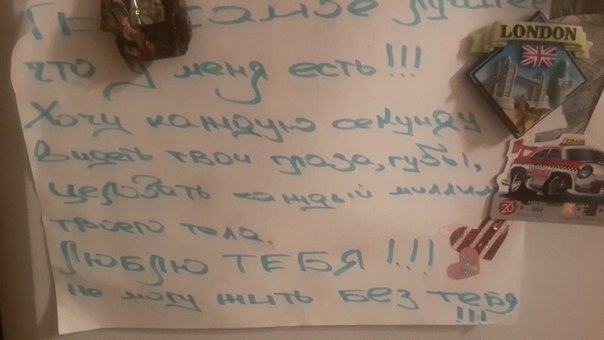 Ты самое лучшее
что у меня есть!!!
Хочу каждую секунду
видеть твои глаза, губы,
целовать каждый миллим
твоего тела.
Люблю ТЕБЯ!!!
не могу жить без тебя
!!!
LONDON
20